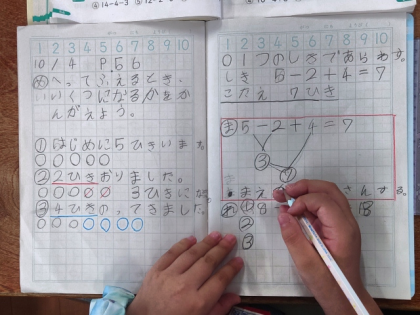 ④ 14-4-3 ⑤ 12-2-
1 2 3 4 5 6 7 8 9 10
10/4 P.56
め へってふえるとき、
いくつになるかをか
んがえよう。
① はじめに5ひきいます。
○○○○○
② 2ひきおりました。
○○○⊘⊘ 3ひきにな
③ 4ひきのってきました。
○○○○○○○
1 2 3 4 5 6 7 8 9 10
○1つのしきであらわす。
しき 5-2+4=7
こたえ 7ひき
ま 5-2+4=7
③
⑦
・まえ さんする。
れ ① 8- 18
②
③